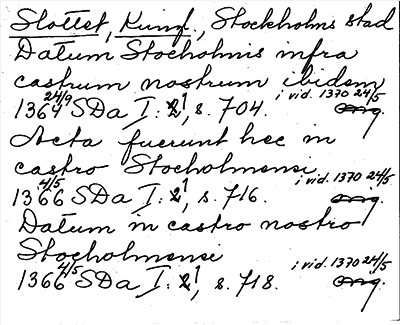 Slottet, Kungl., Stockholms stad
Datum Stocholmis infra
castrum nostrum ibidem
1364 24/9 SDa I:1, s. 704. i vid. 1370 24/5 orig.
Acta fuerunt hec in
castro Stocholmensi
1366 4/5 SDa I:1, s. 716. i vid. 1370 24/5 orig.
Datum in castro nostro
Stocholmensi
1366 4/5 SDa I:1, s. 718. i vid. 1370 24/5 orig.